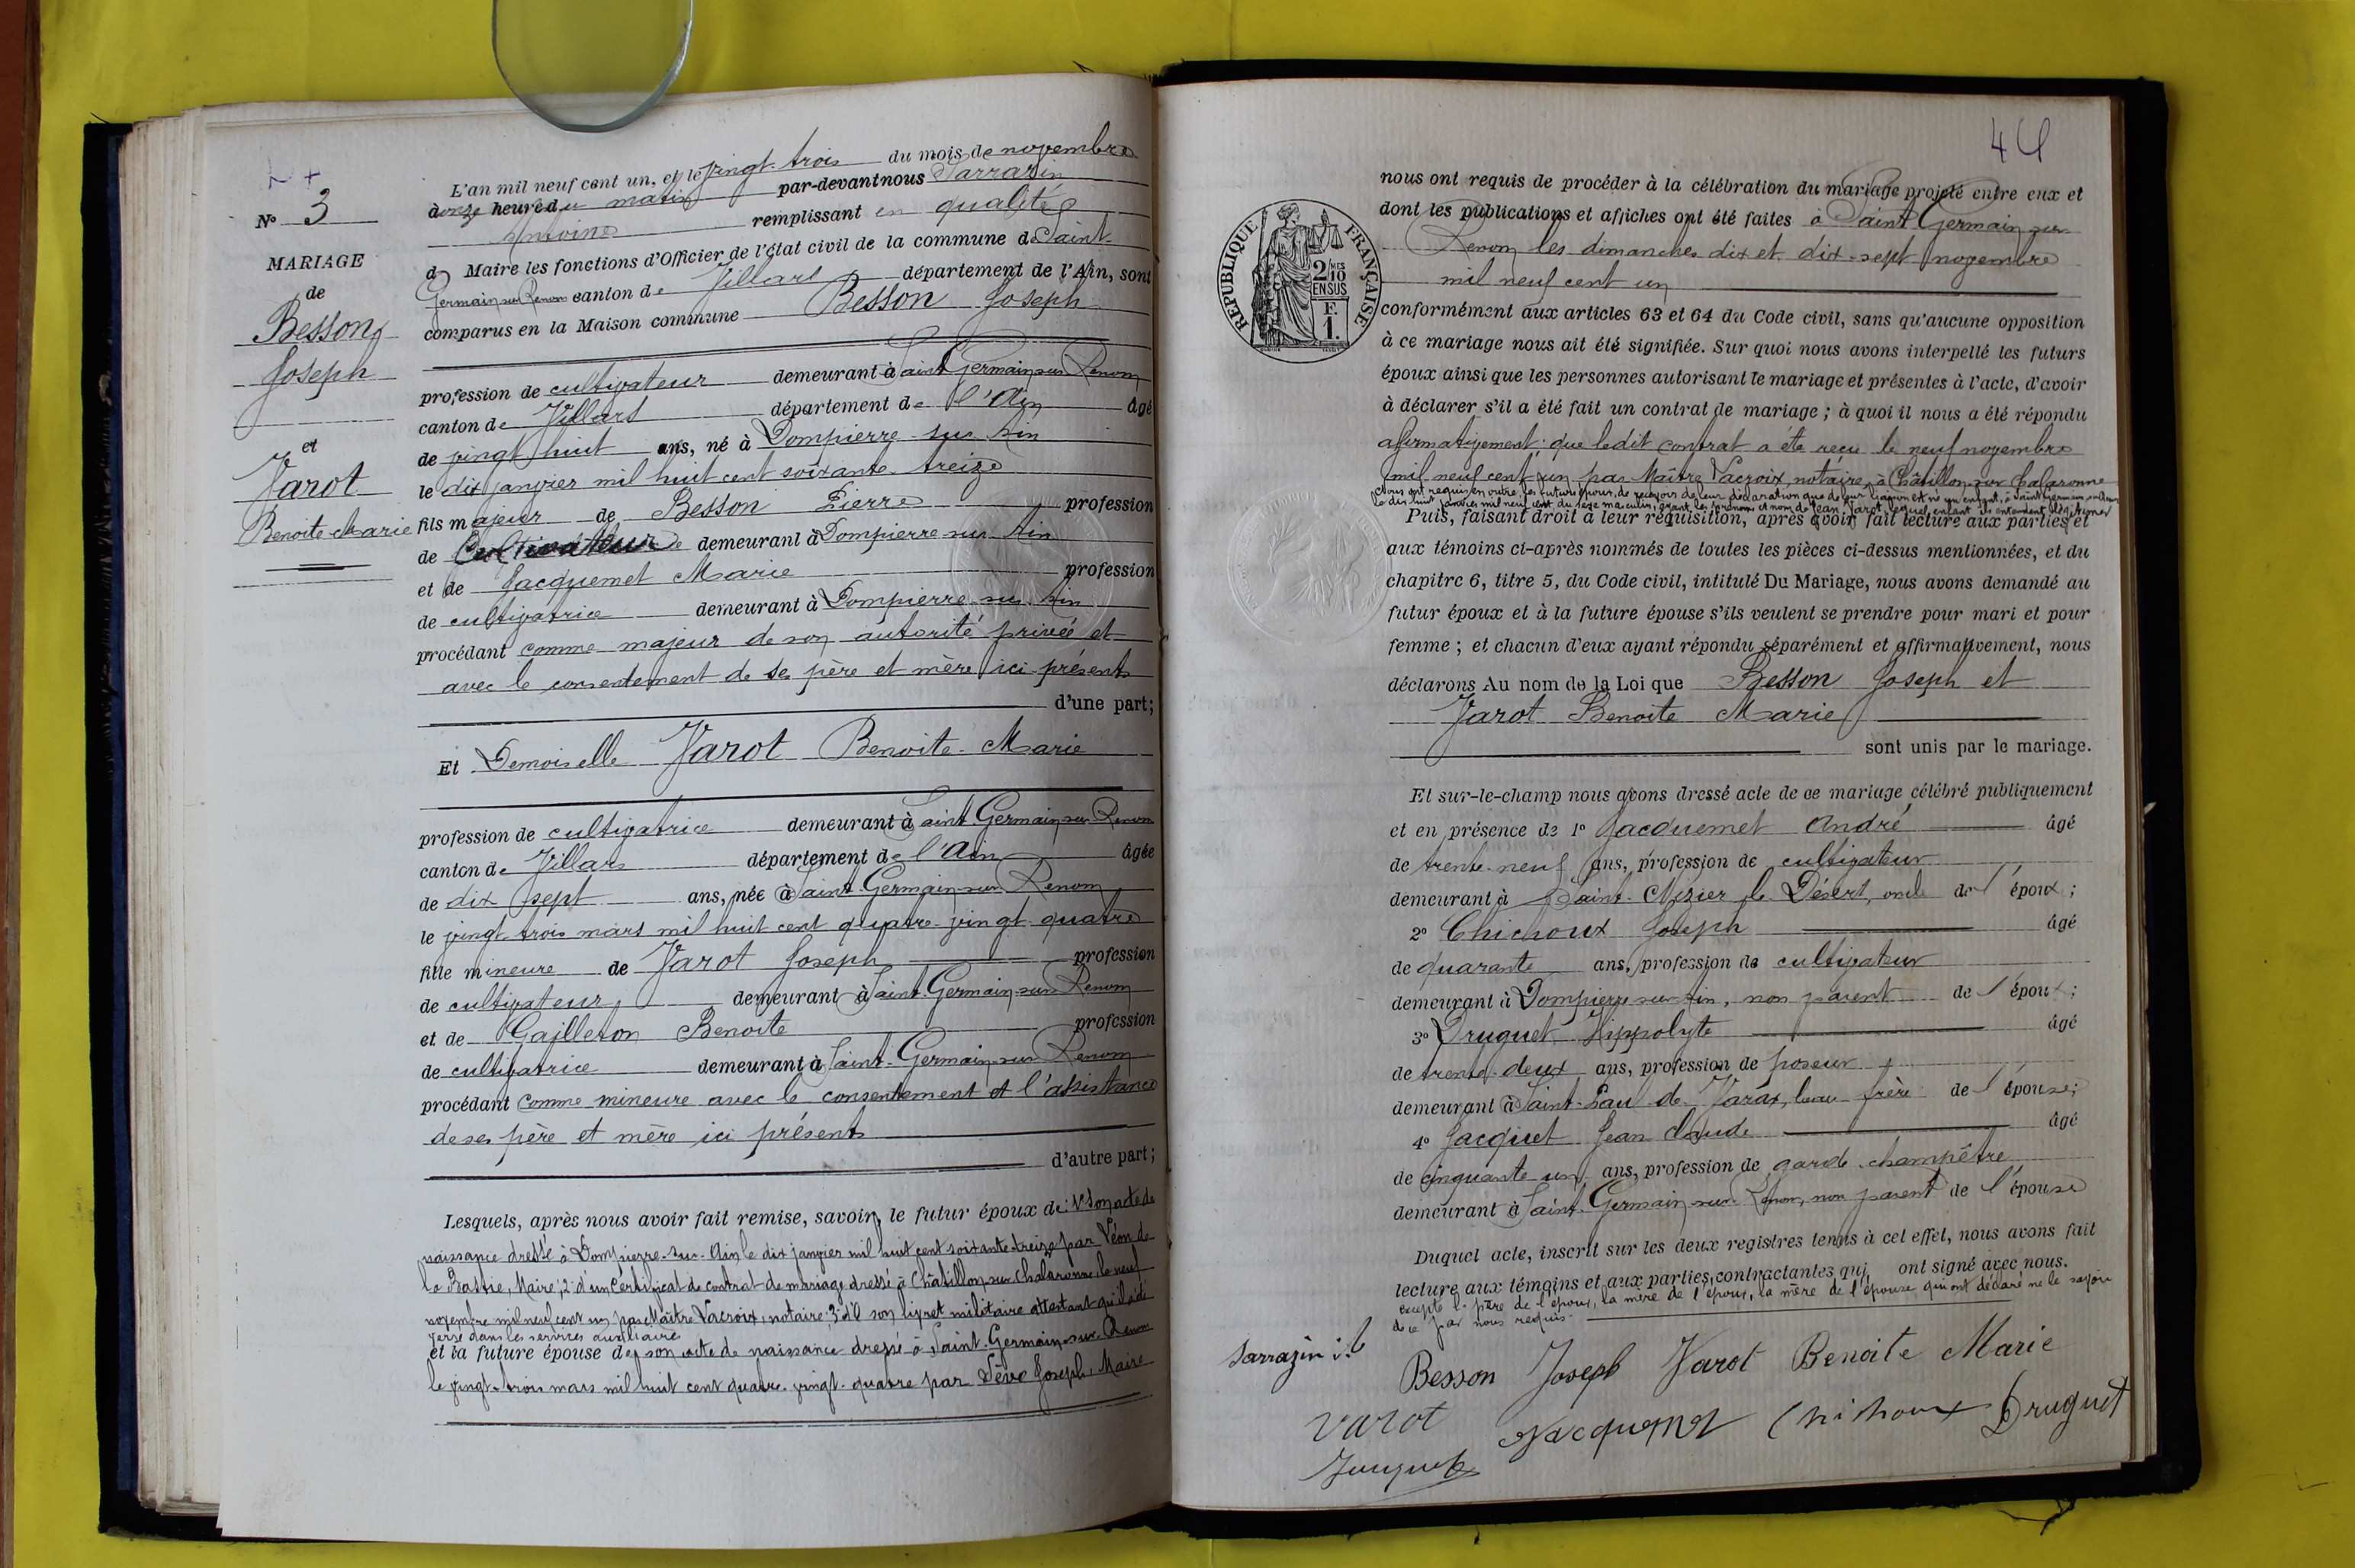 N° 3
MARIAGE
de
Besson
Joseph
et
Varot
Benoite Marie
L'an mil neuf cent un, et le vingt-trois du mois de novembre
à onze heures du matin par-devant nous Sarrazin
Antoine remplissant en qualité
de Maire les fonctions d'Officier de l'état civil de la commune de Saint-
Germain sur Renom canton de Villars département de l'Ain, sont
comparus en la Maison commune Besson Joseph
profession de cultivateur demeurant à Saint Germain sur Renom
canton de Villars département de l'Ain âgé
de vingt huit ans, né à Dompierre sur Ain
le dix janvier mil huit cent soixante treize
fils majeur de Besson Pierre profession
de Cultivateur demeurant à Dompierre sur Ain
et de Jacquemet Marie profession
de cultivatrice demeurant à Dompierre sur Ain
procédant comme majeur de son autorité privée et
avec le consentement de ses père et mère ici présents
d'une part;
Et Demoiselle Varot Benoite-Marie
profession de cultivatrice demeurant à Saint Germain sur Renom
canton de Villars département de l'Ain âgée
de dix sept ans, née à Saint-Germain sur Renom
le vingt-trois mars mil huit cent quatre-vingt-quatre
fille mineure de Varot Joseph profession
de cultivateur demeurant à Saint-Germain sur Renom
et de Gailleton Benoite profession
de cultivatrice demeurant à Saint-Germain-sur Renom
procédant comme mineure avec le consentement et l'assistance
de ses père et mère ici présents
d'autre part;
Lesquels, après nous avoir fait remise, savoir, le futur époux de: 1° Son acte de
naissance dressé à Dompierre-sur-Ain le dix janvier mil huit cent soixante-treize par Véon de
la Bastie, Maire; 2° d'un Certificat de contrat de mariage dressé à Châtillon-sur-Chalaronne, le neuf
novembre mil neuf cent un par Maître Vacroix, notaire; 3° de son livret militaire attestant qu'il a été
versé dans les services auxiliaires
et la future épouse de son acte de naissance dressé à Saint-Germain-sur-Renom
le vingt-trois mars mil huit cent quatre-vingt-quatre par Joseph, Maire
44
RÉPUBLIQUE FRANÇAISE
2/10MES
EN SUS
F.
1.
nous ont requis de procéder à la célébration du mariage projeté entre eux et
dont les publications et affiches ont été faites à Saint Germain sur
Renom les dimanches dix et dix-sept novembre
mil neuf cent un
conformément aux articles 63 et 64 du Code civil, sans qu'aucune opposition
à ce mariage nous ait été signifiée. Sur quoi nous avons interpellé les futurs
époux ainsi que les personnes autorisant le mariage et présentes à l'acte, d'avoir
à déclarer s'il a été fait un contrat de mariage; à quoi il nous a été répondu
affirmativement: que ledit contrat a été reçu le neuf novembre
mil neuf cent un par Maître Vacroix, notaire, à Châtillon-sur-Chalaronne
Nous ont requis en outre, les futurs époux, de recevoir de leur déclaration que de leur liaison est né un enfant, à Saint Germain sur Renom
le dix huit janvier mil neuf cent du sexe masculin, ayant les prénom et nom de Jean Varot lequel enfant ils entendent légitimer
Puis, faisant droit à leur réquisition, après avoir fait lecture aux parties et
aux témoins ci-après nommés de toutes les pièces ci-dessus mentionnées, et du
chapitre 6, titre 5, du Code civil, intitulé Du Mariage, nous avons demandé au
futur époux et à la future épouse s'ils veulent se prendre pour mari et pour
femme; et chacun d'eux ayant répondu séparément et affirmativement, nous
déclarons Au nom de la Loi que Besson Joseph et
Varot Benoite Marie
sont unis par le mariage.
Et sur-le-champ nous avons dressé acte de ce mariage célébré publiquement
et en présence de 1° Jacquemet André âgé
de trente-neuf ans, profession de cultivateur
demeurant à Saint-Nizier le Désert, oncle de l'époux;
2° Chichoux Joseph âgé
de quarante ans, profession de cultivateur
demeurant à Dompierre sur Ain, non parent de l'époux;
3° Druguet Hippolyte âgé
de trente-deux ans, profession de poseur
demeurant à Saint-Paul de Varax, beau-frère de l'épouse;
4° Jacquet Jean Claude âgé
de cinquante un ans, profession de garde-champêtre
demeurant à Saint-Germain sur Renom, non parent de l'épouse
Duquel acte, inscrit sur les deux registres tenus à cet effet, nous avons fait
lecture aux témoins et aux parties contractantes qui ont signé avec nous.
excepté le père de l'époux, la mère de l'époux, la mère de l'épouse qui ont déclaré ne le savoir
de ce par nous requis.
Sarrazin
Besson Joseph Varot Benoite Marie
Varot Jacquemet Chichoux Druguet
Jacquet